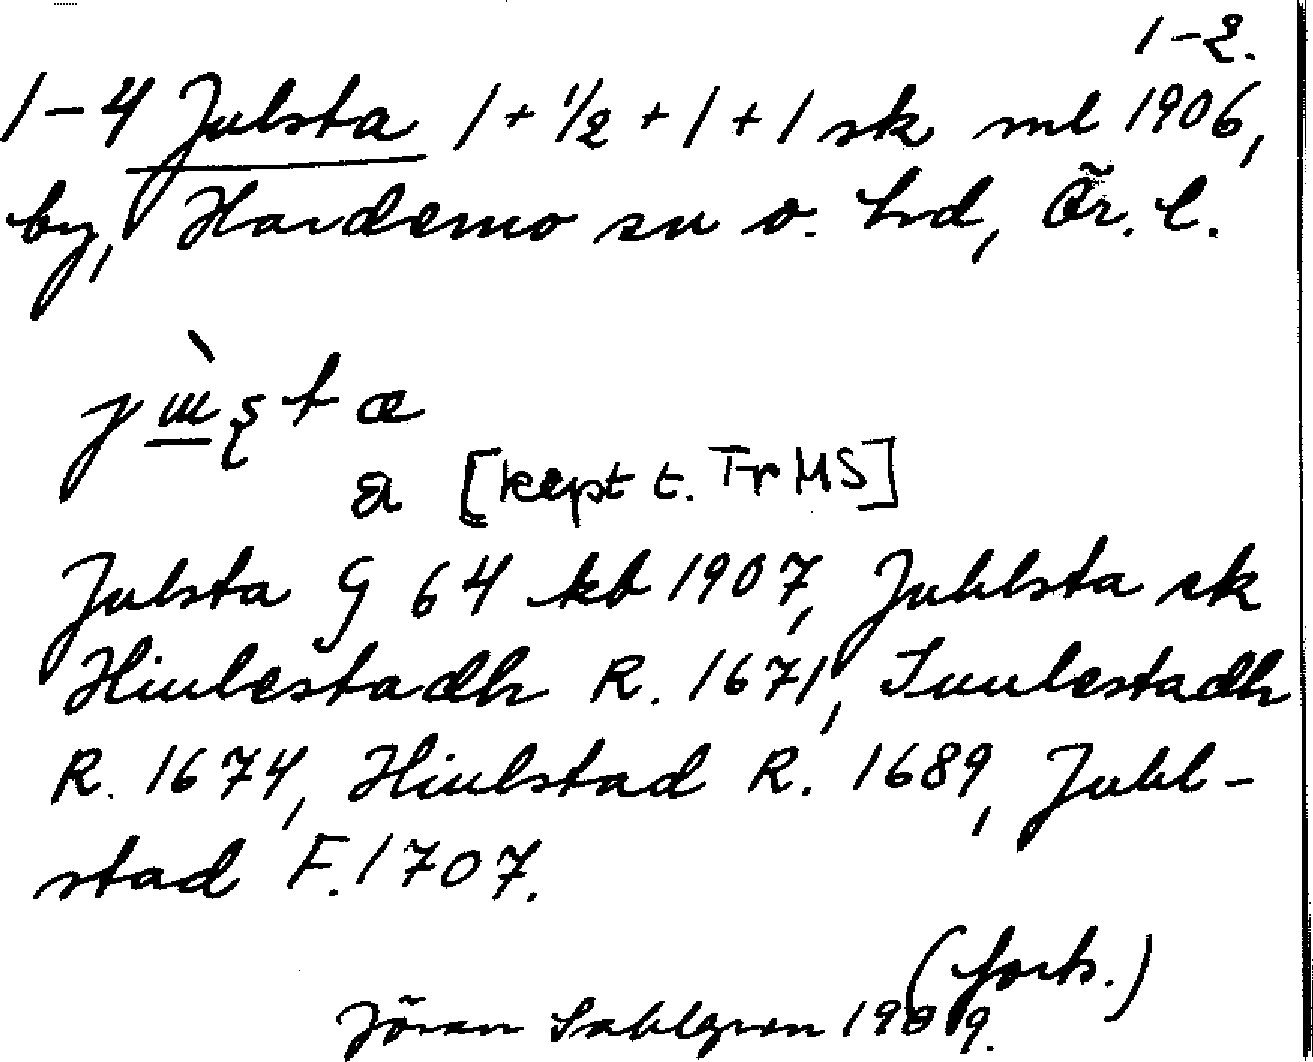 1-2.
1-4 Julsta 1 + 1/2 + 1 + 1 sk ml 1906,
by, Hardemo sn o. hd, Ör. l.
a [kept t. Tr MS]
Julsta G 64 kb 1907, Juhlsta sk
Hiulestadh R. 1671, Iuulestadh
R. 1674, Hiulstad R. 1689, Juhl-
stad F. 1707.
(forts.)
Jöran Sahlgren 1909.